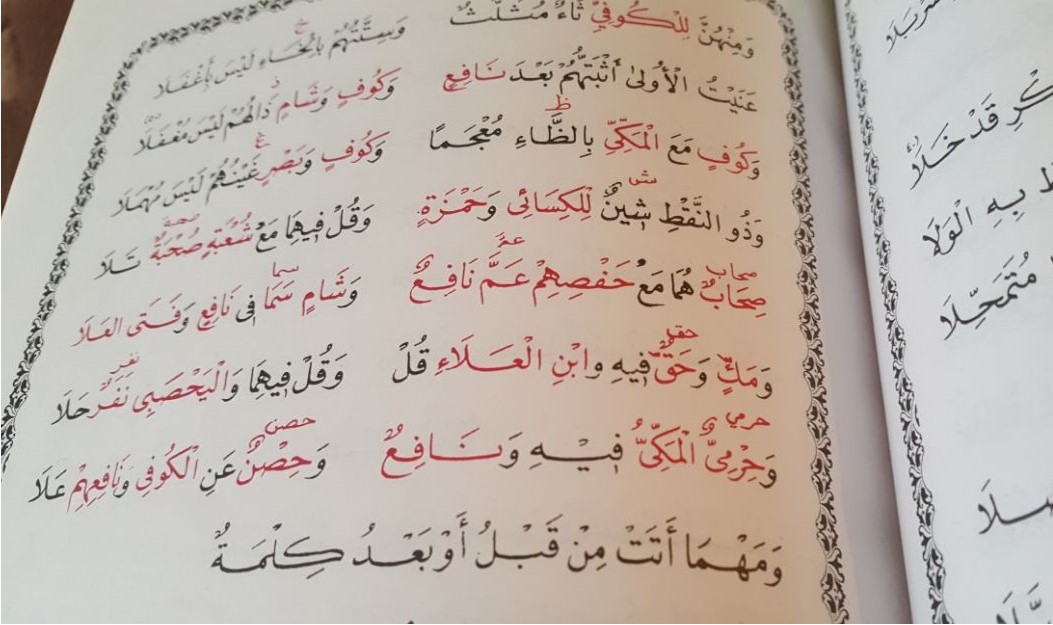 قَدْ خَلَا
بِهِ الْوَلَا
مُتَمَحِّلَا
وَمِنْهُنَّ لِلْكُوفِيِّ ثَاءٌ مُثَلَّثٌ وَسِتَّتُهُمْ بِالْخَاءِ لَيْسَ بِأَغْفَلَا
خ
عَنَيْتُ الْأُولَى أَثْبَتُّهُمْ بَعْدَ نَافِعٍ وَكُوفٍ وَشَامٍ ذَالُهُمْ لَيْسَ مُغْفَلَا
ذ
وَكُوفٍ مَعَ الْمَكِّيِّ بِالظَّاءِ مُعْجَمًا وَكُوفٍ وَبَصْرٍ غَيْنُهُمْ لَيْسَ مُهْمَلَا
ظ غ
وَذُو النَّقْطِ شِينٌ لِلْكِسَائِي وَحَمْزَةٍ وَقُلْ فِيهِمَا مَعْ شُعْبَةٍ صُحْبَةٌ تَلَا
ش صحبة
صِحَابٌ هُمَا مَعْ حَفْصِهِمْ عَمَّ نَافِعٌ وَشَامٍ سَمَا فِي نَافِعٍ وَفَتَى الْعَلَا
صحاب عم سما
وَمَكٍّ وَحَقٌّ فِيهِ وَابْنِ الْعَلَاءِ قُلْ وَقُلْ فِيهِمَا وَالْيَحْصَبِي نَفَرٌ حَلَا
حق نفر
وَحِرْمِيٌّ الْمَكِّيُّ فِيهِ وَنَافِعٌ وَحِصْنٌ عَنِ الْكُوفِي وَنَافِعِهِمْ عَلَا
حرمي حصن
وَمَهْمَا أَتَتْ مِنْ قَبْلُ أَوْ بَعْدُ كِلْمَةٌ